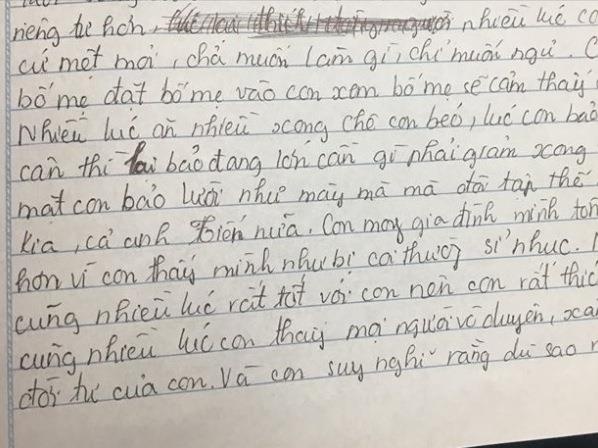 riêng tư hơn, nhiều lúc co
cứ mệt mỏi, chả muốn làm gì, chỉ muốn ngủ. C
bố mẹ đặt bố mẹ vào con xem bố mẹ sẽ cảm thấy
Nhiều lúc ăn nhiều xong chê con béo, lúc con bảo
cân thì lại bảo đang lớn cần gì phải giảm xong
mặt con bảo lười như mày mà mà đòi tập thể
kia, cả anh nữa. Con mong gia đình mình tôn
hơn vì con thấy mình như bị cả
cũng nhiều lúc rất tốt với con nên con rất thíc
cũng nhiều lúc con thấy mọi người vô duyên, xa
đời tư của con. Và con suy nghĩ rằng dù sao